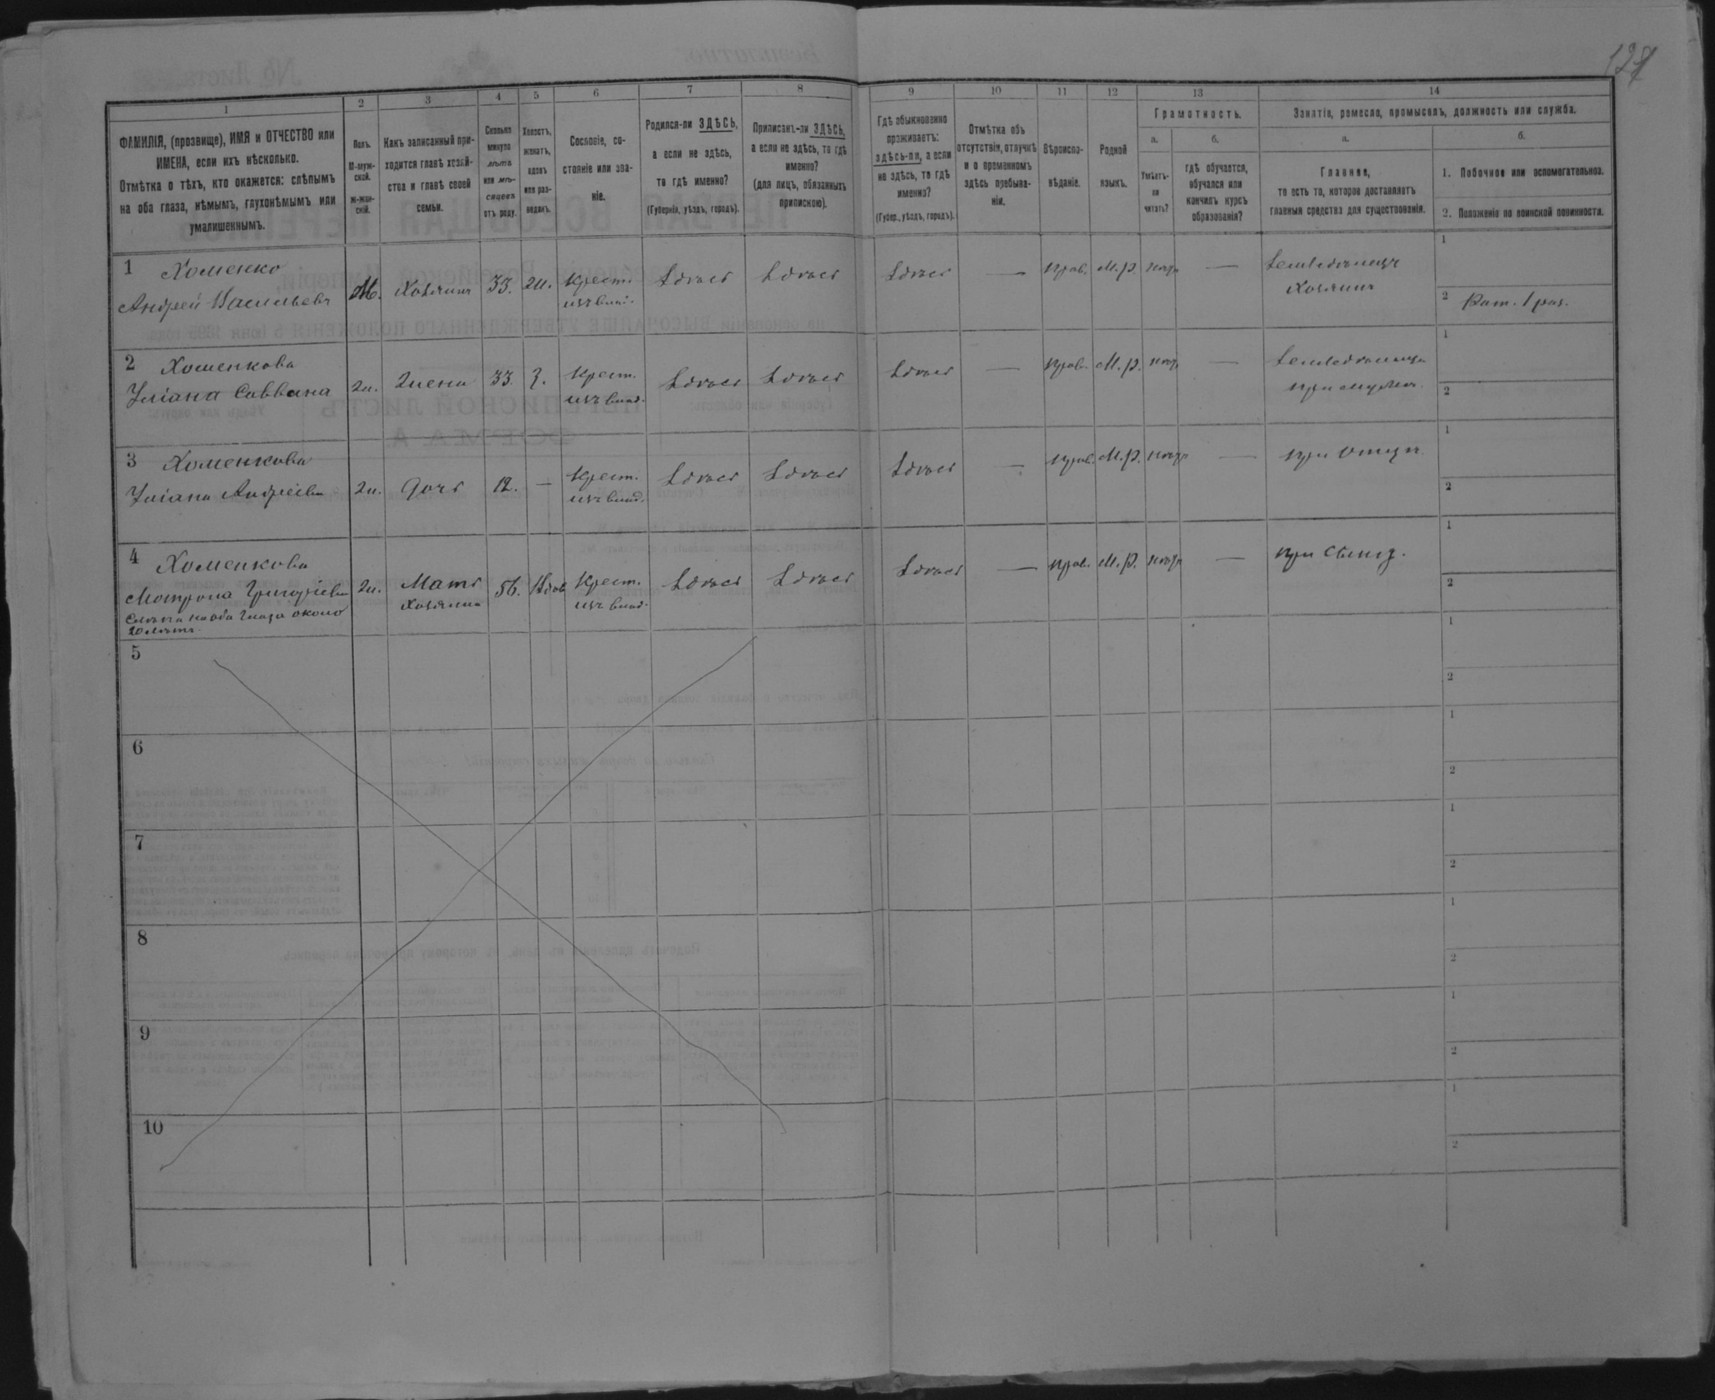 127
1 2 3 4 5 6 7 8 9 10 11 12 13 14
ФАМИЛІЯ, (прозвище), ИМЯ и ОТЧЕСТВО или
ИМЕНА, если ихъ нѣсколько.
Отмѣтка о тѣхъ, кто окажется: слѣпымъ
на оба глаза, нѣмымъ, глухонѣмымъ или
умалишеннымъ.
Полъ.
М-муж-
ской.
Ж-жен-
скій.
Какъ записанный при-
ходится главѣ хозяй-
ства и главѣ своей
семьи.
Сколько
минуло
лѣтъ
или мѣ-
сяцевъ
отъ роду.
Холостъ,
женатъ,
вдовъ
или раз-
веденъ.
Сословіе, со-
стояніе или зва-
ніе.
Родился-ли ЗДѢСЬ,
а если не здѣсь,
то гдѣ именно?
(Губернія, уѣздъ, городъ).
Приписанъ-ли ЗДѢСЬ,
а если не здѣсь, то гдѣ
именно?
(для лицъ, обязанныхъ
припискою).
Гдѣ обыкновенно
проживаетъ:
здѣсь-ли, а если
не здѣсь, то гдѣ
именно?
(Губер., уѣздъ, городъ).
Отмѣтка объ
отсутствіи, отлучкѣ
и о временномъ
здѣсь пребыва-
ніи.
Вѣроиспо-
вѣданіе.
Родной
языкъ.
Грамотность.
а.
Умѣетъ-
ли
читать?
б.
гдѣ обучается,
обучался или
кончилъ курсъ
образованія?
Занятіе, ремесло, промыселъ, должность или служба.
а.
Главное,
то есть то, которое доставляетъ
главныя средства для существованія.
б.
1. Побочное или вспомогательное.
2. Положеніе по воинской повинности.
1 Хоменко
Андрей Васильевъ М. Хозяинъ 33. Ж. Крест. изъ влад. Здѣсь Здѣсь Здѣсь — Прав. М.р. — Земледѣлецъ
Хозяинъ
1
2 Рат. 1 раз.
2 Хоменкова
Уліана Саввана Ж. Жена 33. З. Крест. изъ влад. Здѣсь Здѣсь Здѣсь — Прав. М.р. —
при мужѣ
1
2
3 Хоменкова
Уліана Андреева Ж. Дочь 12. — Крест. изъ влад. Здѣсь Здѣсь Здѣсь — Прав. М.р. — при отцѣ
1
2
4 Хоменкова
Мотрона Григорієва Ж. Мать Хозяина 56. Вдов. Крест. изъ влад. Здѣсь Здѣсь Здѣсь — Прав. М.р. — при сынѣ.
Слѣпа на оба глаза около
10 лѣтъ.
1
2
5
1
2
6
1
2
7
1
2
8
1
2
9
1
2
10
1
2